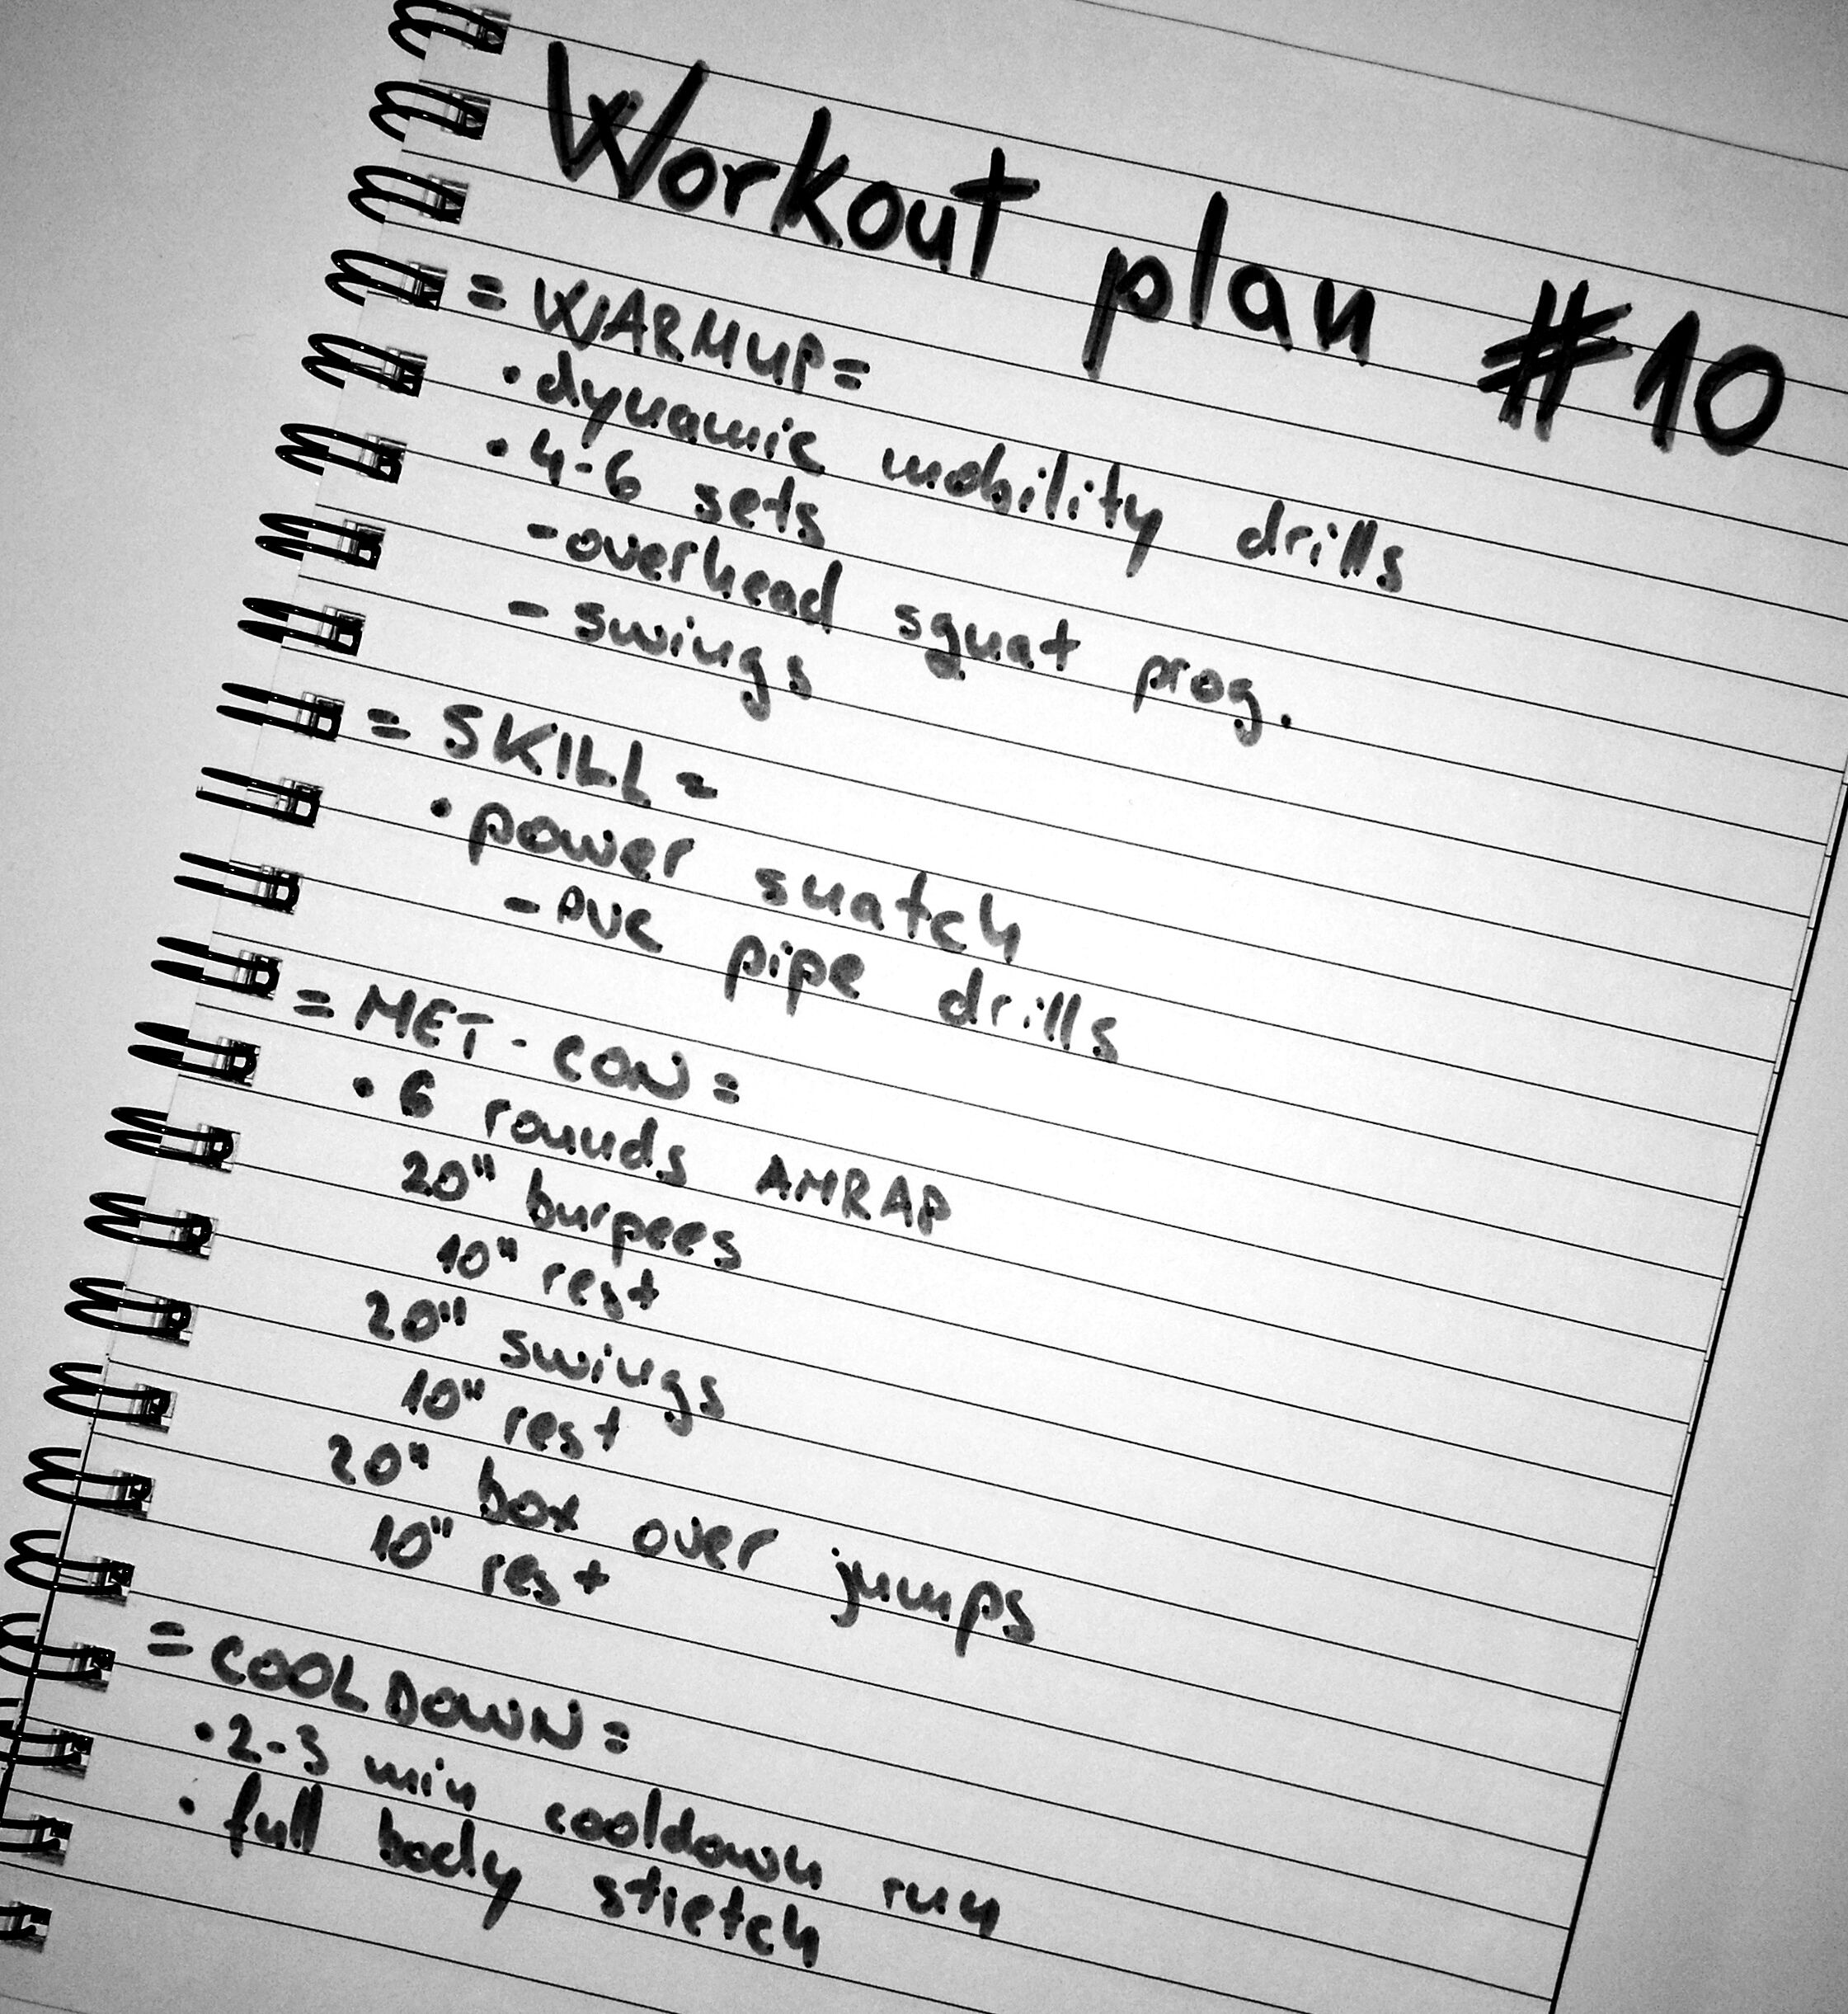 Workout plan #10
= WARMUP=
• dynamic mobility drills
• 4-6 sets
- overhead squat prog.
- swings
= SKILL =
• power snatch
- PVC pipe drills
= MET-CON =
• 6 rounds AMRAP
20" burpees
10" rest
20" swings
10" rest
20" box over jumps
10" rest
= COOL DOWN =
• 2-3 min cooldown run
• full body stretch